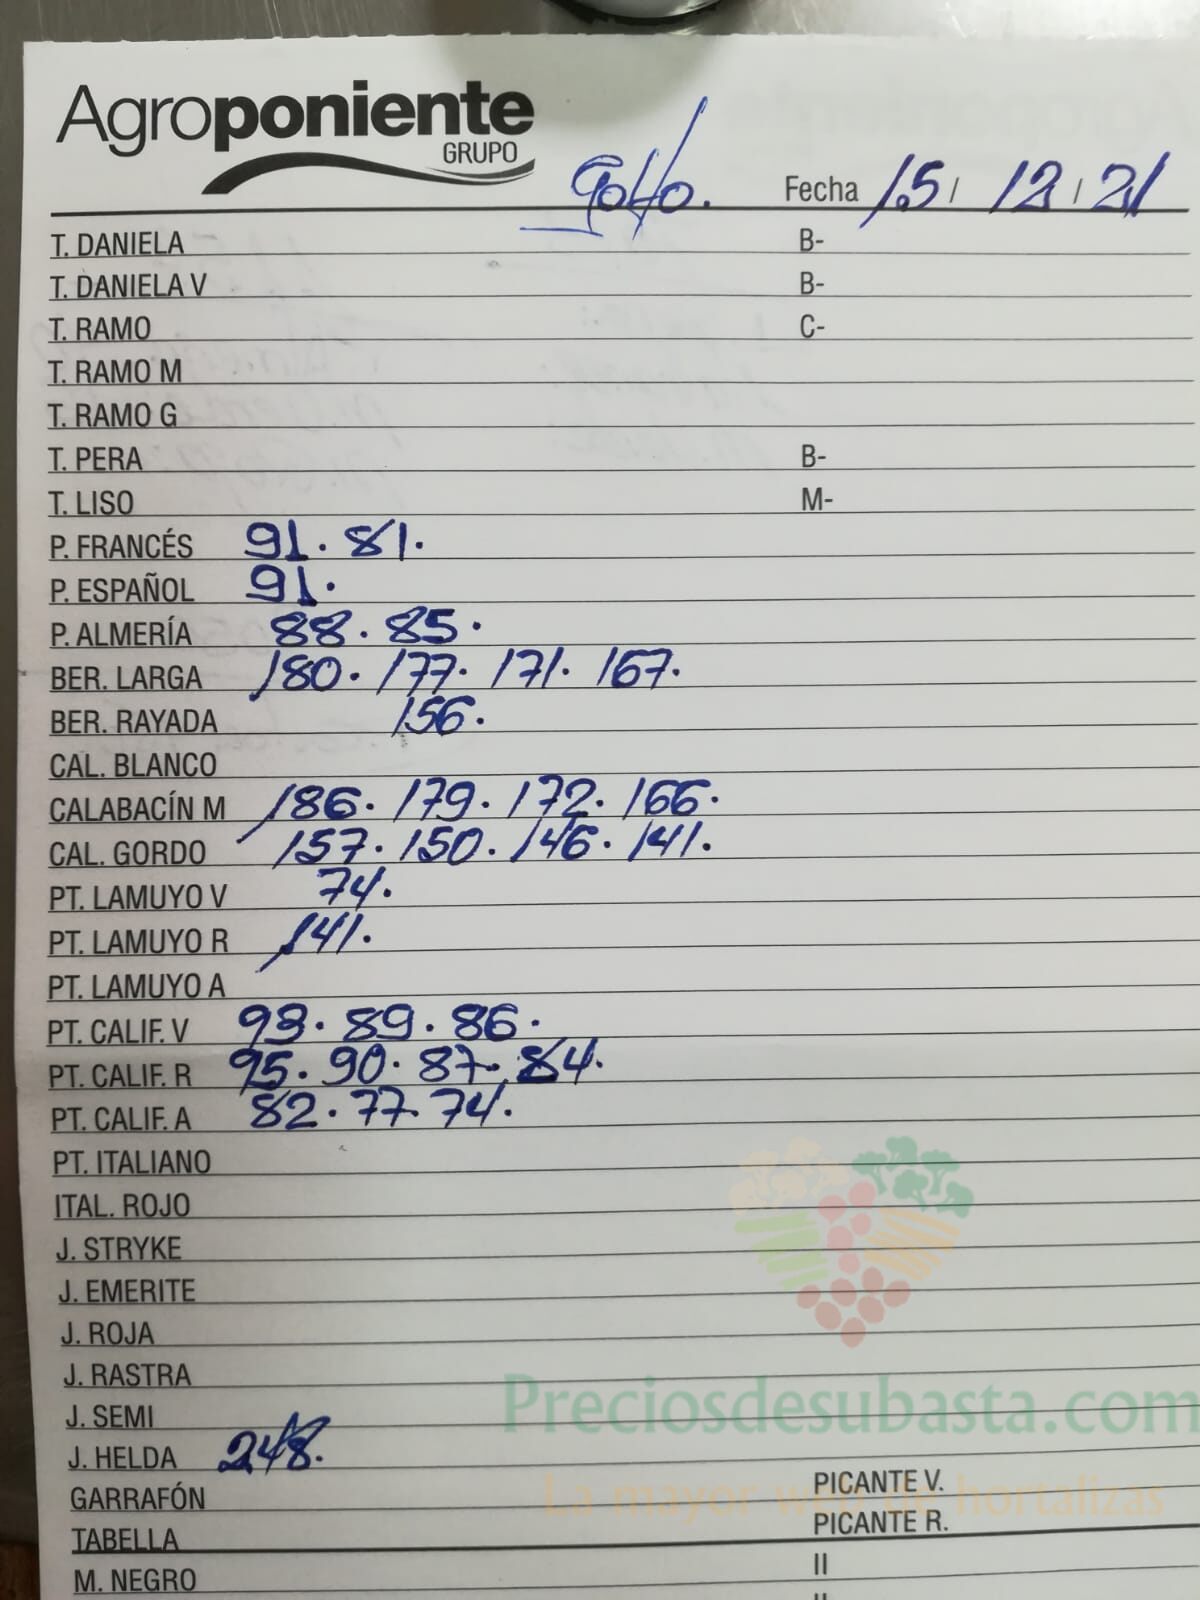 Agroponiente
GRUPO
Golfo. Fecha 15 / 12 / 21
T. DANIELA B-
T. DANIELA V B-
T. RAMO C-
T. RAMO M
T. RAMO G
T. PERA B-
T. LISO M-
P. FRANCÉS 91. 81.
P. ESPAÑOL 91.
P. ALMERÍA 88. 85.
BER. LARGA 180. 177. 171. 167.
BER. RAYADA 156.
CAL. BLANCO
CALABACÍN M 186. 179. 172. 166.
CAL. GORDO 157. 150. 146. 141.
PT. LAMUYO V 74.
PT. LAMUYO R 141.
PT. LAMUYO A
PT. CALIF. V 93. 89. 86.
PT. CALIF. R 95. 90. 87. 84.
PT. CALIF. A 82. 77. 74.
PT. ITALIANO
ITAL. ROJO
J. STRYKE
J. EMERITE
J. ROJA
J. RASTRA
Preciosdesubasta.com
J. SEMI
J. HELDA 248.
GARRAFÓN PICANTE V.
La mayor web de hortalizas
TABELLA PICANTE R.
M. NEGRO II